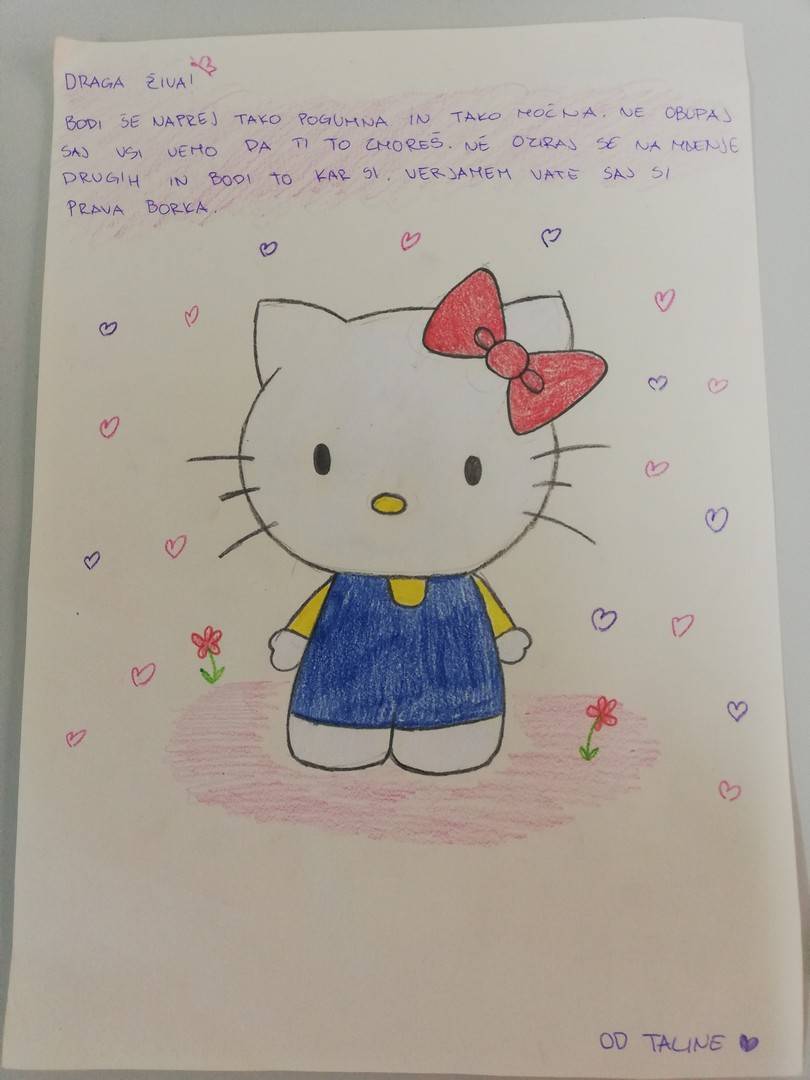 DRAGA ŽIVA!
BODI ŠE NAPREJ TAKO POGUMNA IN TAKO MOČNA. NE OBUPAJ
SAJ VSI VEMO DA TI TO ZMOREŠ. NE OZIRAJ SE NA MNENJE
DRUGIH IN BODI TO KAR SI. VERJAMEM VATE SAJ SI
PRAVA BORKA.
OD TALINE